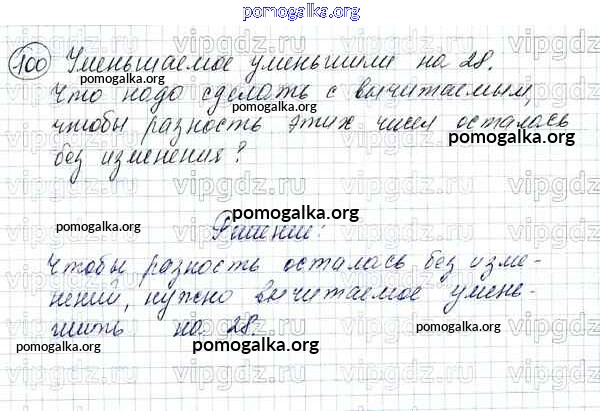 pomogalka.org
100 Уменьшаемое уменьшили на 28.
pomogalka.org pomogalka.org
Что надо сделать с вычитаемым,
чтобы разность этих чисел осталась
pomogalka.org
без изменения?
vipgdz.ru vipgdz.ru vipgdz.ru
pomogalka.org
pomogalka.org pomogalka.org
Решение:
Чтобы разность осталась без изме-
нений, нужно вычитаемое умень-
шить на 28.
pomogalka.org pomogalka.org pomogalka.org